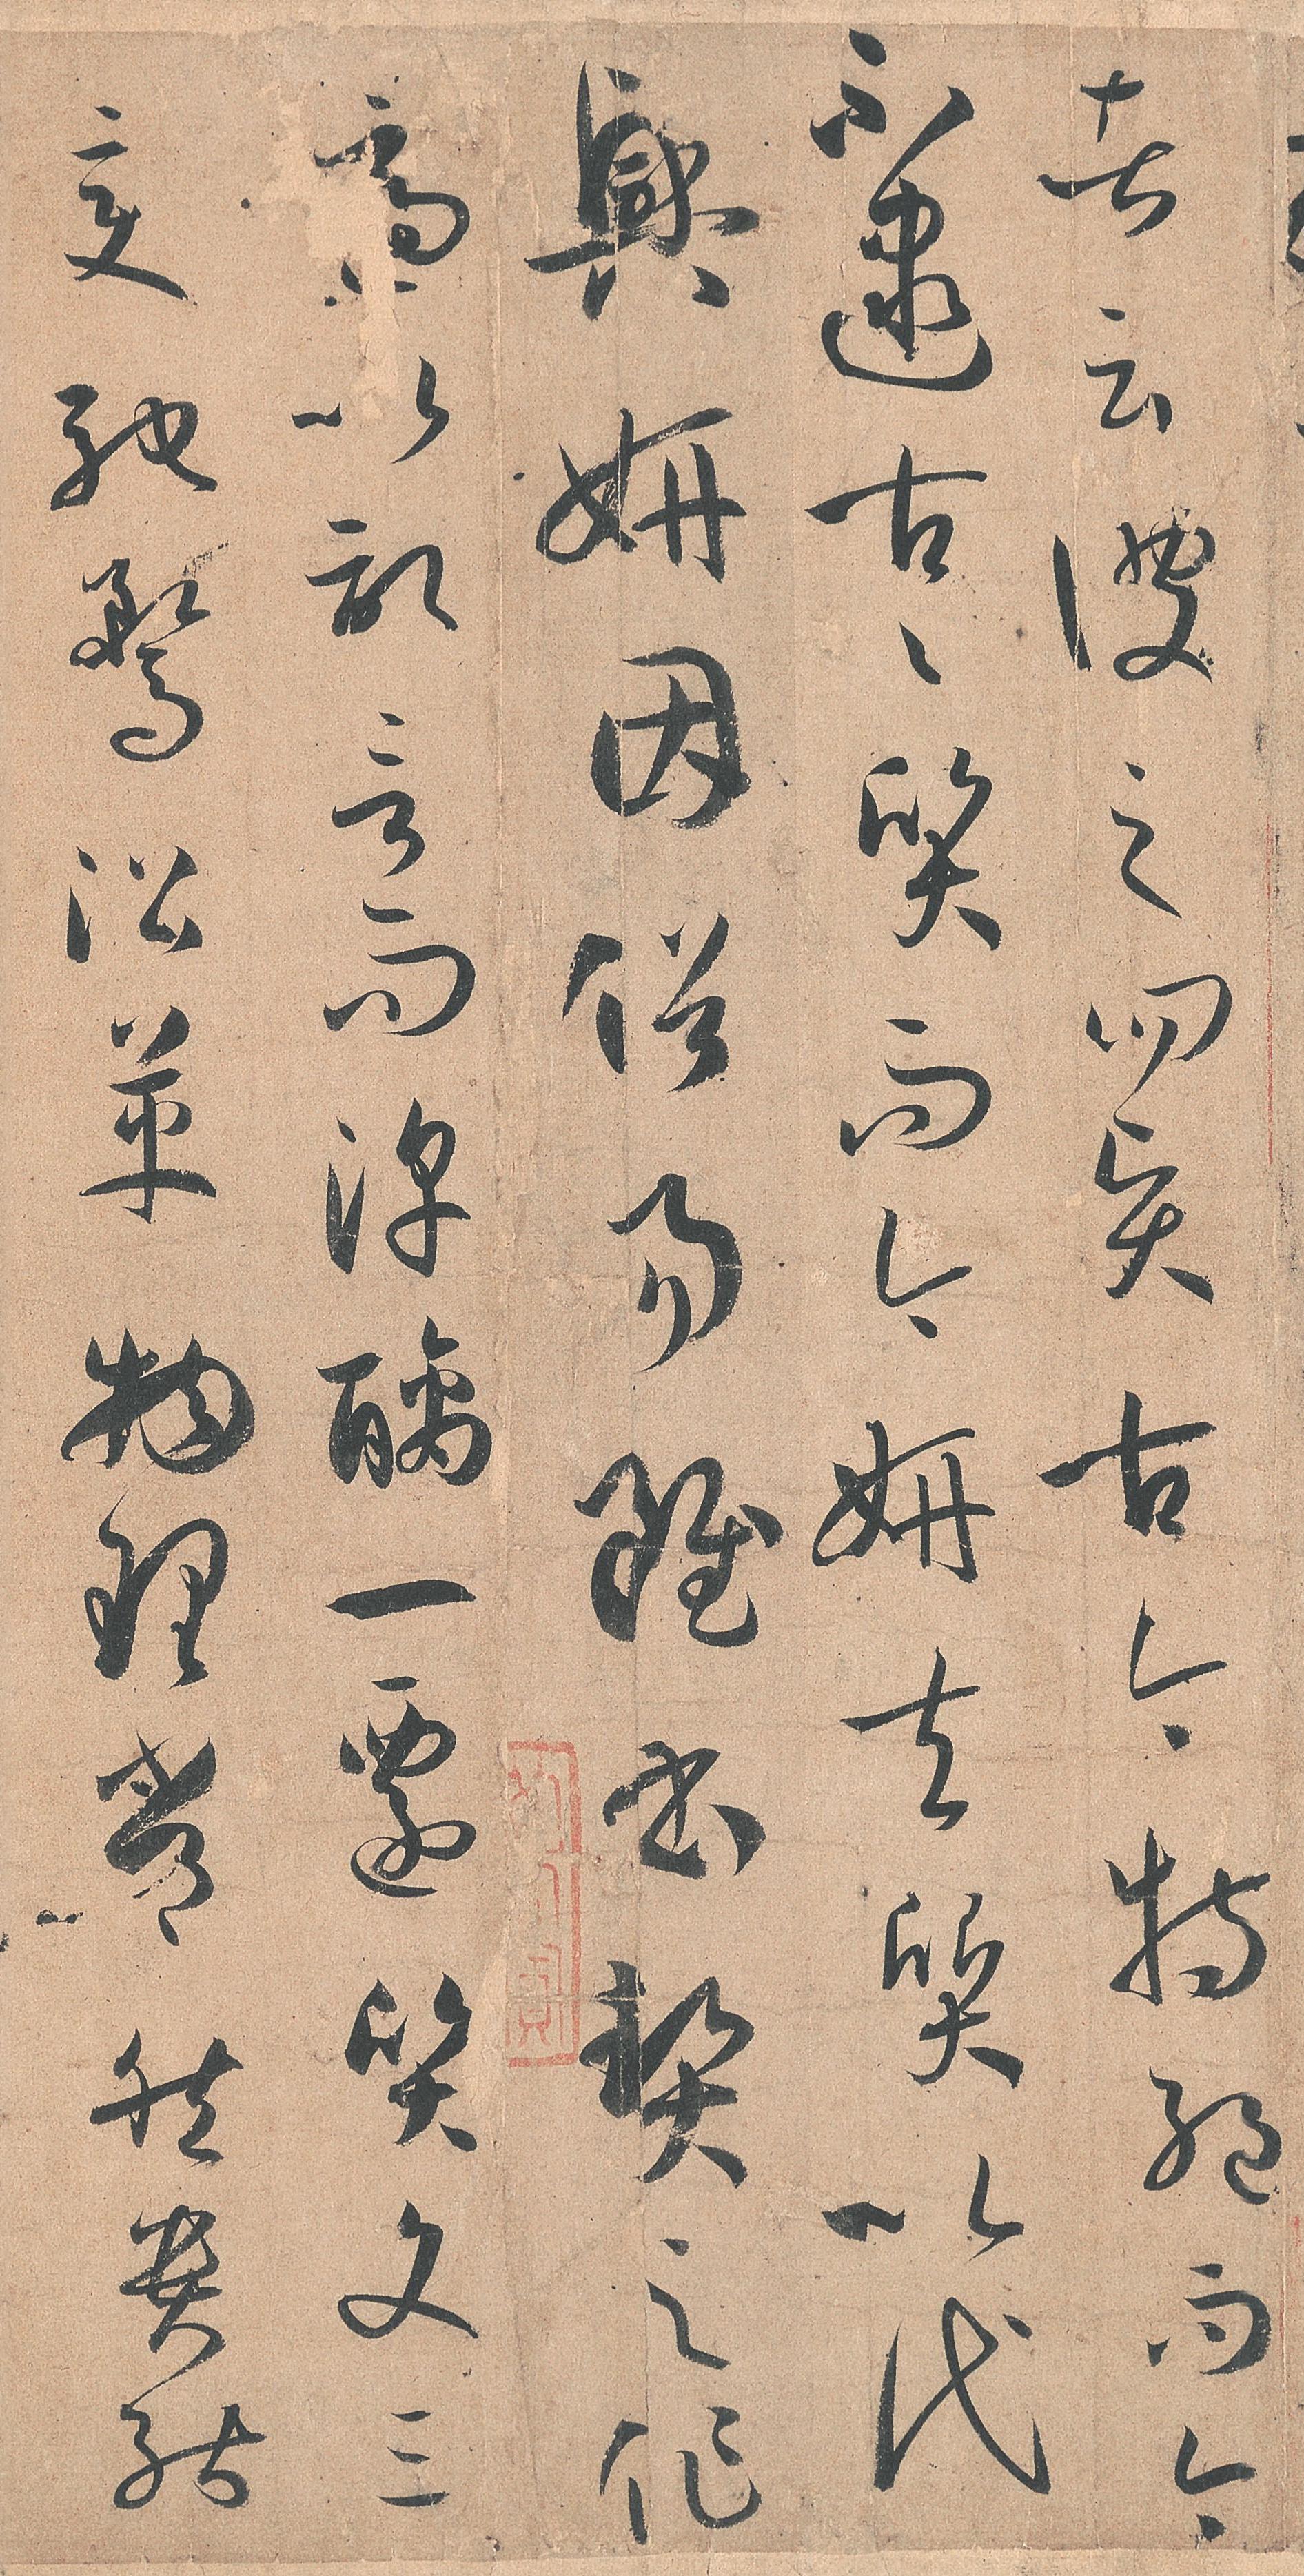 者云彼之四賢古今特絕而今
不逮古〻質而今妍夫質以代
興妍因俗易雖書契之作
適以記言而淳醨一遷質文三
變馳騖沿革物理常然貴能